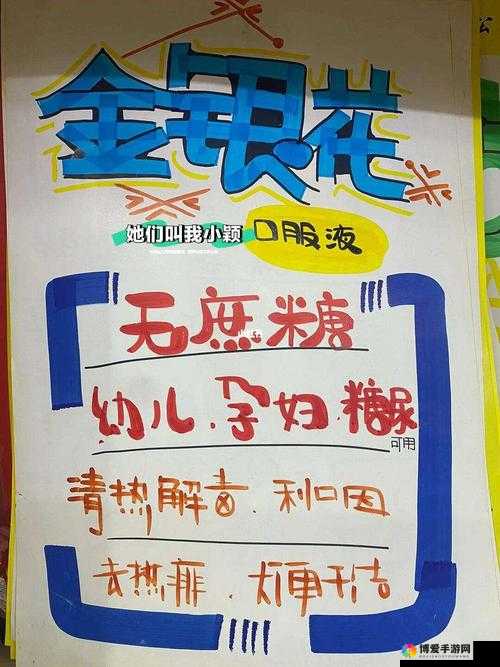 金银花
她们叫我小颖
口服液
无庶糖
幼儿.孕妇.糖尿
可用
清热解毒.利口因
去热痱.大便干洁
博爱手游网